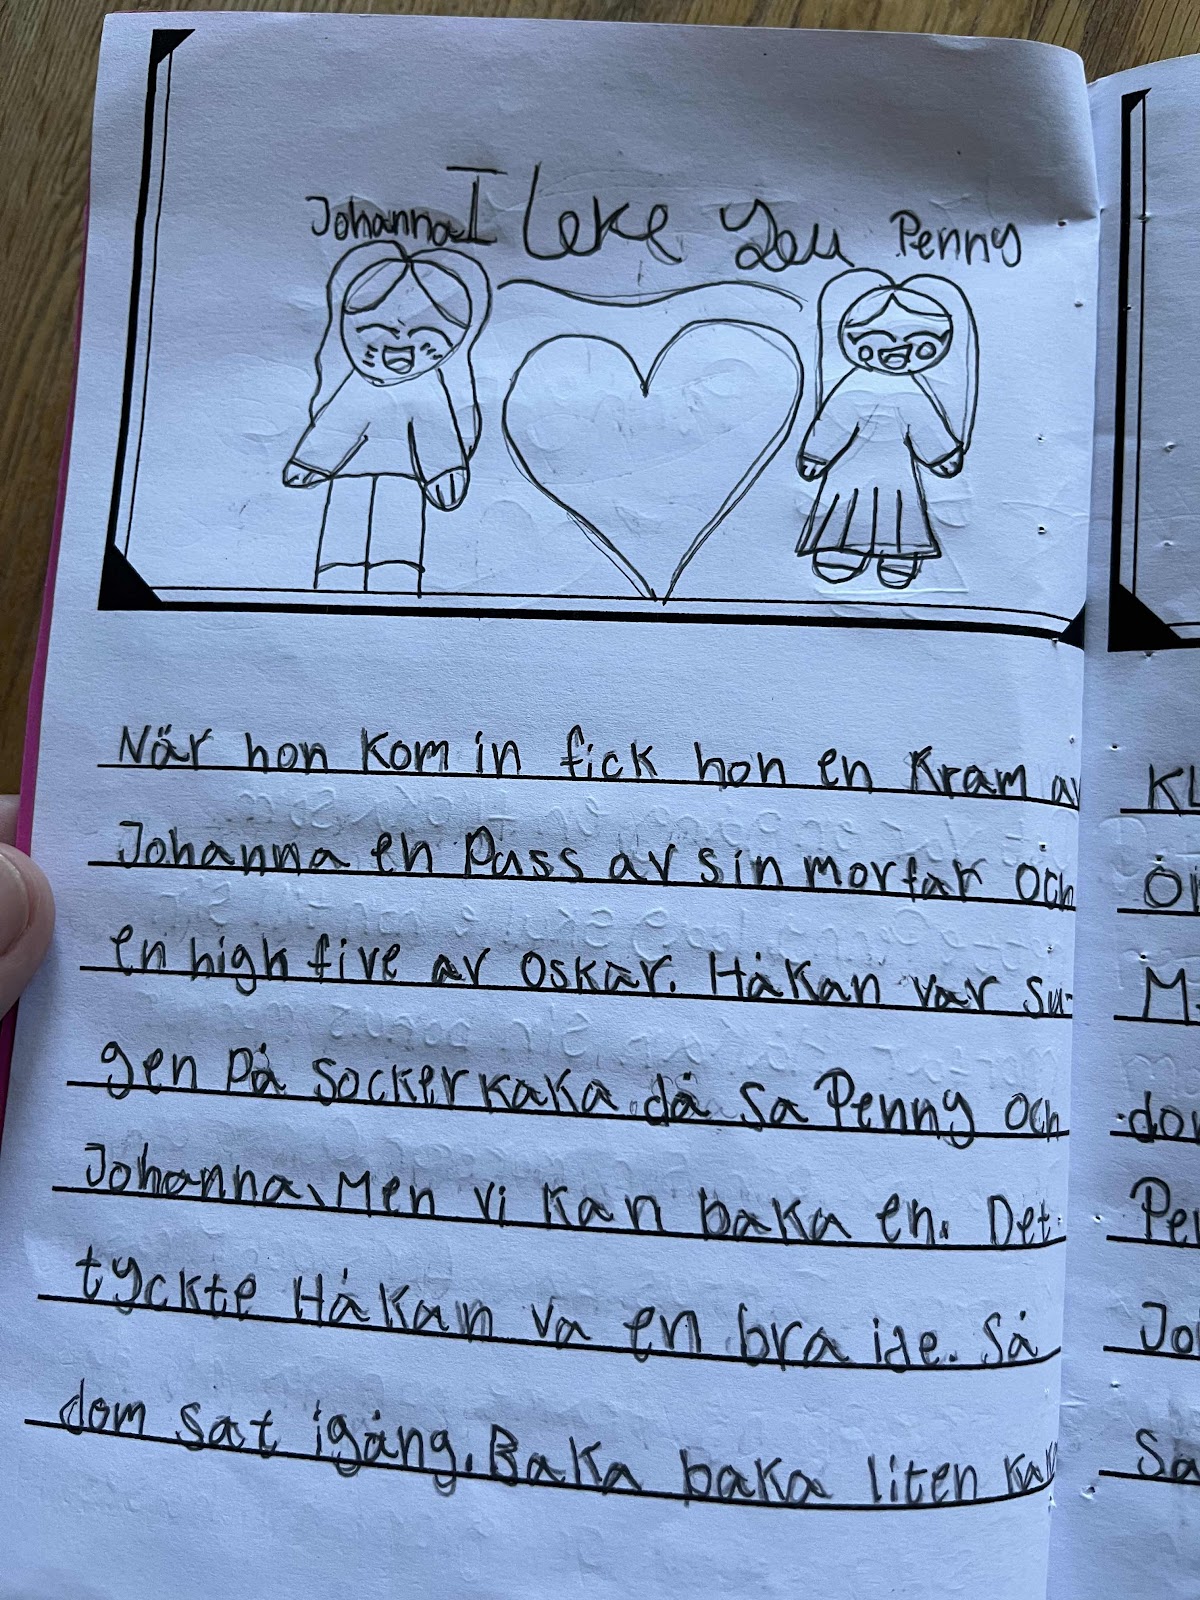 Johanna I Leke You Penny
När hon kom in fick hon en kram av
Johanna en puss av sin morfar och
en high five av Oskar. Håkan var su-
gen på sockerkaka då sa Penny och
Johanna, Men vi kan baka en. Det
tyckte Håkan va en bra ide. Så
dom sat igång. Baka baka liten kaka
KL
M
dor
Pe
Jo
Sa